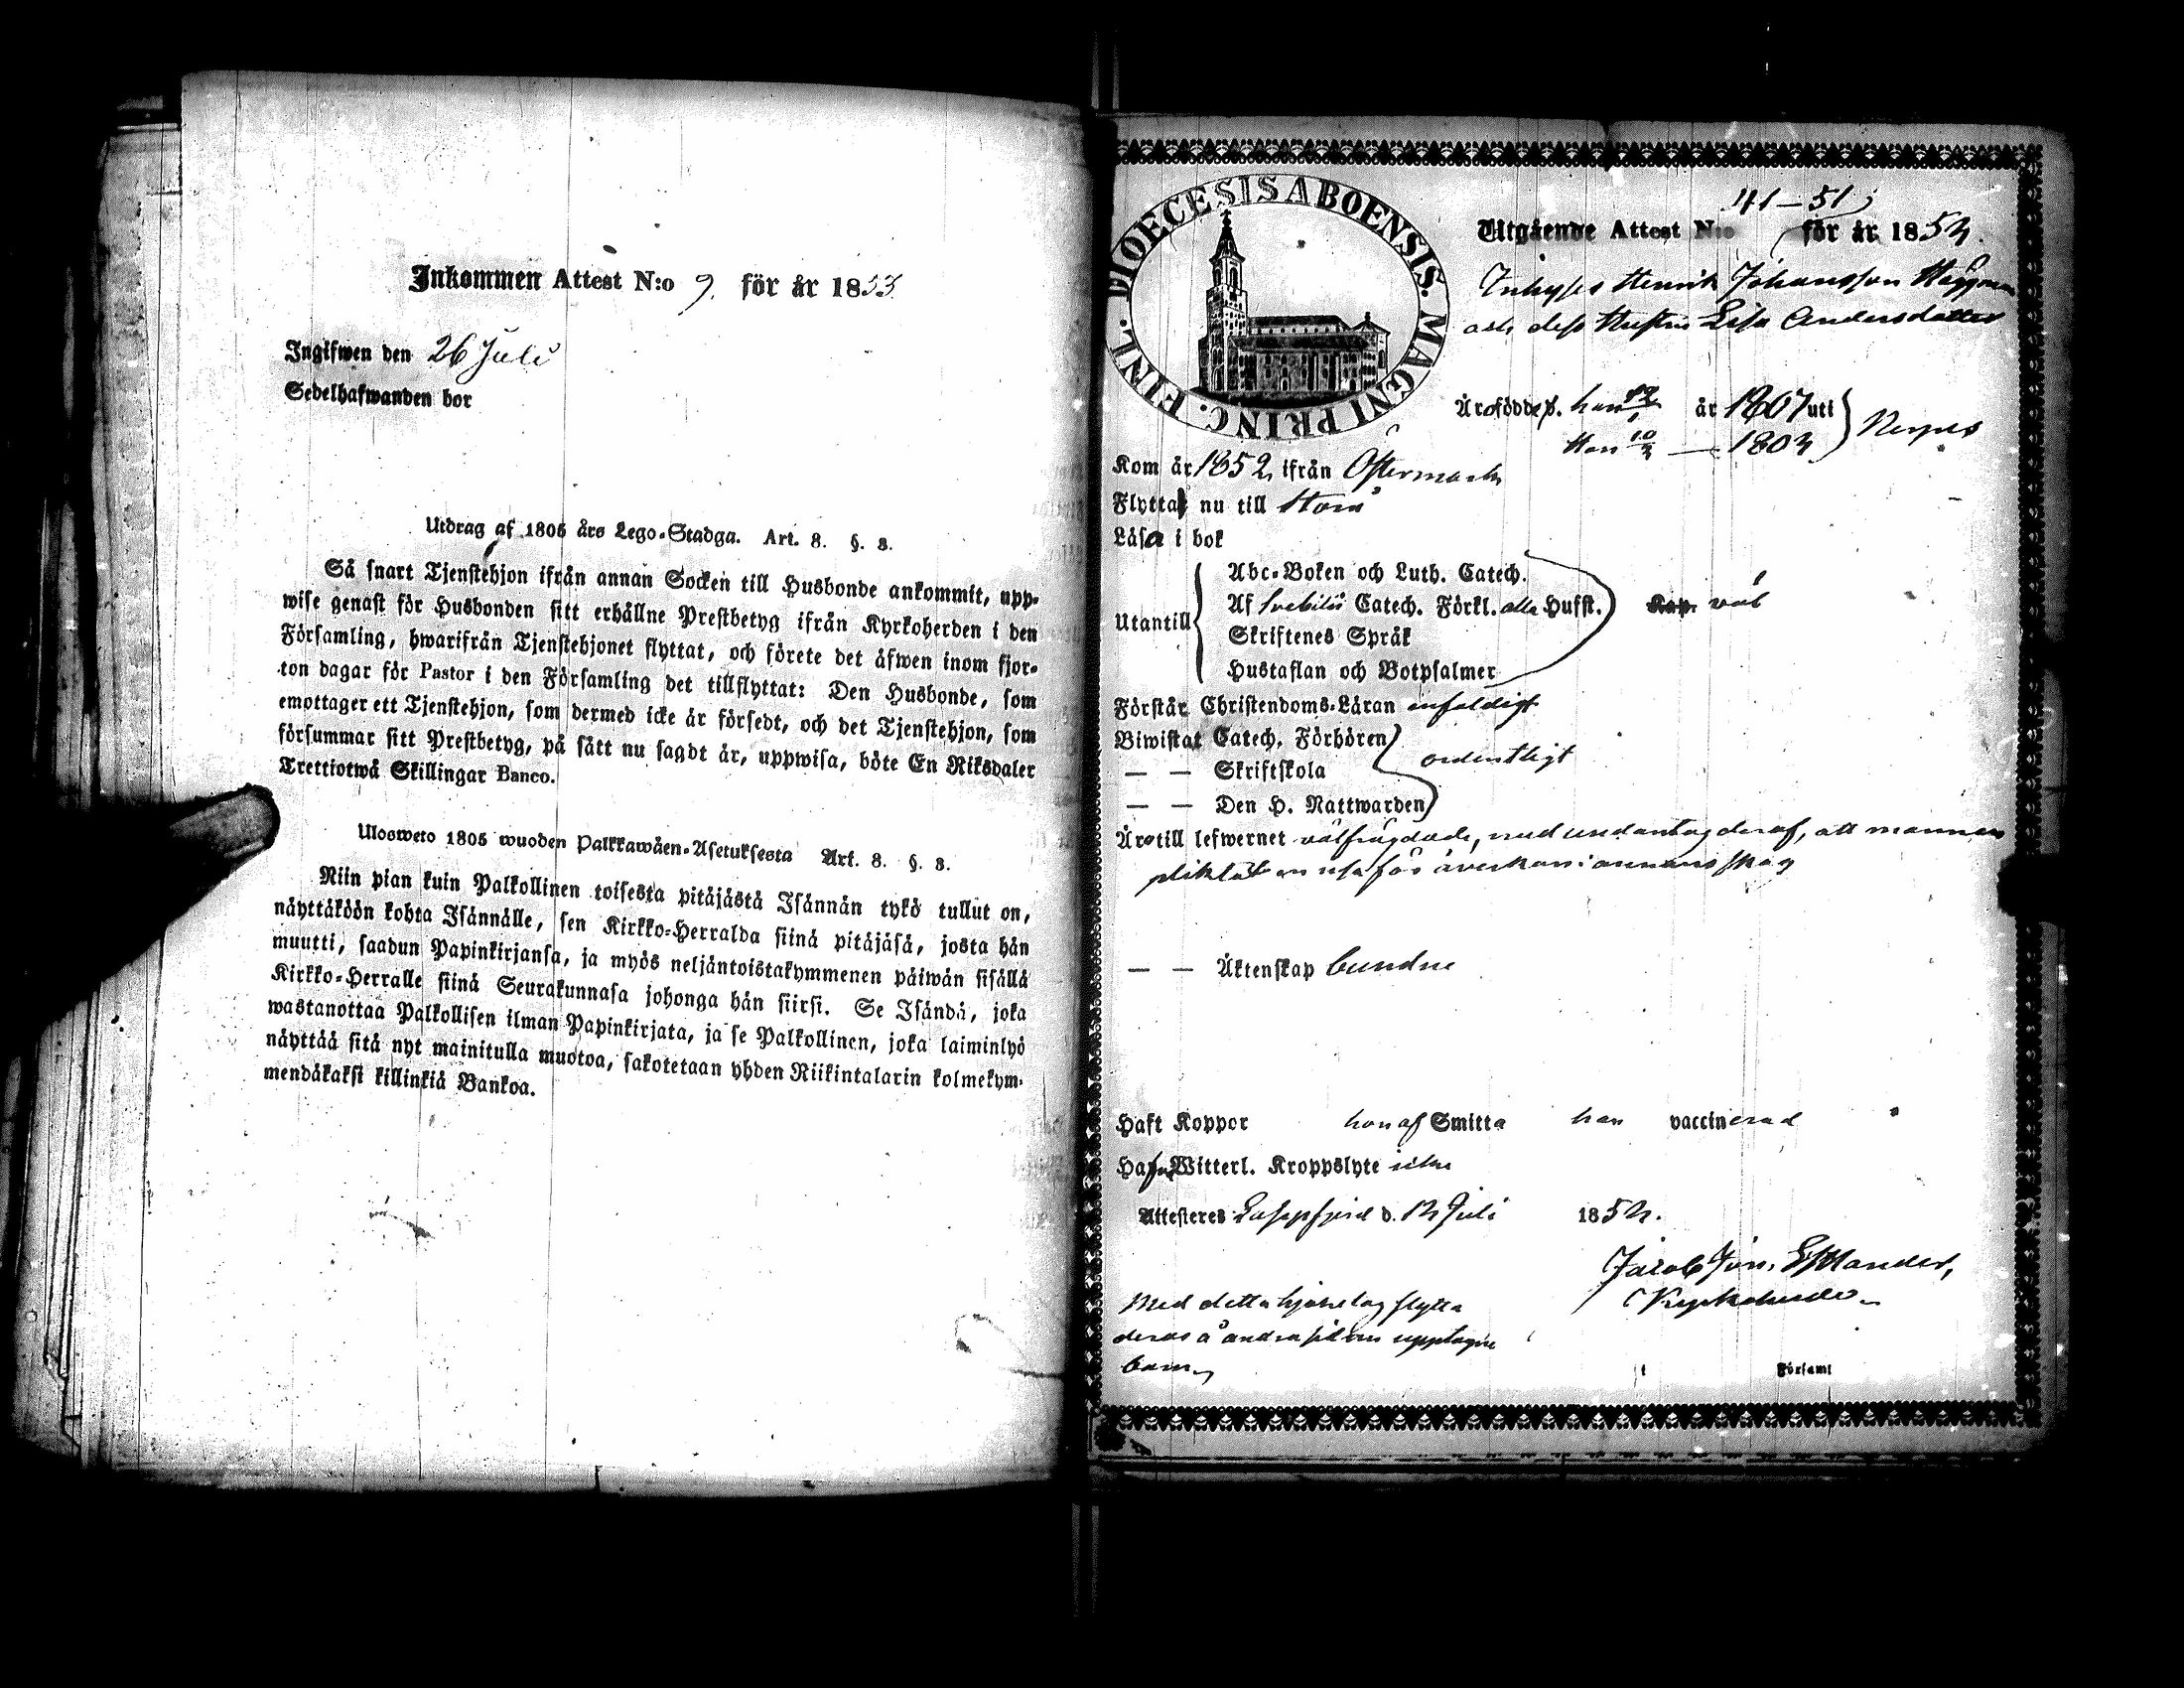 Inkommen Attest N:o 9. för år 1853
Ingifwen den 26 Juli
Sedelhafwanden bor
Utdrag af 1805 års Lego-Stadga. Art. 8. §. 3.
Så snart Tjenstehjon ifrån annan Socken till Husbonde ankommit, upp-
wise genast för Husbonden sitt erhållne Prestbetyg ifrån Kyrkoherden i den
Församling, hwarifrån Tjenstehjonet flyttat, och förete det äfwen inom fjor-
ton dagar för Pastor i den Församling det tillflyttat: Den Husbonde, som
emottager ett Tjenstehjon, som dermed icke är försedt, och det Tjenstehjon, som
försummar sitt Prestbetyg, på sätt nu sagdt är, uppwisa, böte En Riksdaler
Trettiotwå Skillingar Banco.
Ulosweto 1805 wuoden Palkkawäen-Asetuksesta Art. 8. §. 3.
Niin pian kuin Palkollinen toisesta pitäjästä Isännän tykö tullut on,
näyttäköön kohta Isännälle, sen Kirkko-Herralda siinä pitäjäsä, josta hän
muutti, saadun Papinkirjansa, ja myös neljäntoistakymmenen päiwän sisällä
Kirkko-Herralle siinä Seurakunnasa johonga hän siirsi. Se Isändä, joka
wastanottaa Palkollisen ilman Papinkirjata, ja se Palkollinen, joka laiminlyö
näyttää sitä nyt mainitulla muotoa, sakotetaan yhden Riikintalarin kolmekym-
mendäkaksi killinkiä Bankoa.
DIOECESIS ABOENSIS. MAGNI PRINC. FINL.
41–51
Utgående Attest N:o för år 1853.
Inhyses Henrik Johansson Häggman
och dess Hustru Lisa Andersdotter
Äro födde d. han 12/1 år 1807 uti
Hon 10/3 — 1803 Nerpes
Kom år 1852 ifrån Östermark
Flytta nu till Storå
Läsa i bok
Abc-Boken och Luth. Catech.
Utantill Af Svebilii Catech. Förkl. alla Hufst. väl
Skriftenes Språk
Hustaflan och Botpsalmer
Förstår Christendoms-Läran enfaldigt
Biwistat Catech. Förhören
— — Skriftskola ordentligt
— — Den H. Nattwarden
Äro till lefwernet välfrägdade, med undantag deraf, att mannen
pliktat för åverkan i annans skog
— — Äktenskap bundne
Haft Koppor hon af Smitta han vaccinerad
Hafva Witterl. Kroppslyte icke
Attesteres Lappfjerd d. 12 Juli 1853.
Jacob Jon. Estlander,
Kyrkoherde
Med detta hjonelag flytta
deras å andra sidan upptagne
barn
i Församl